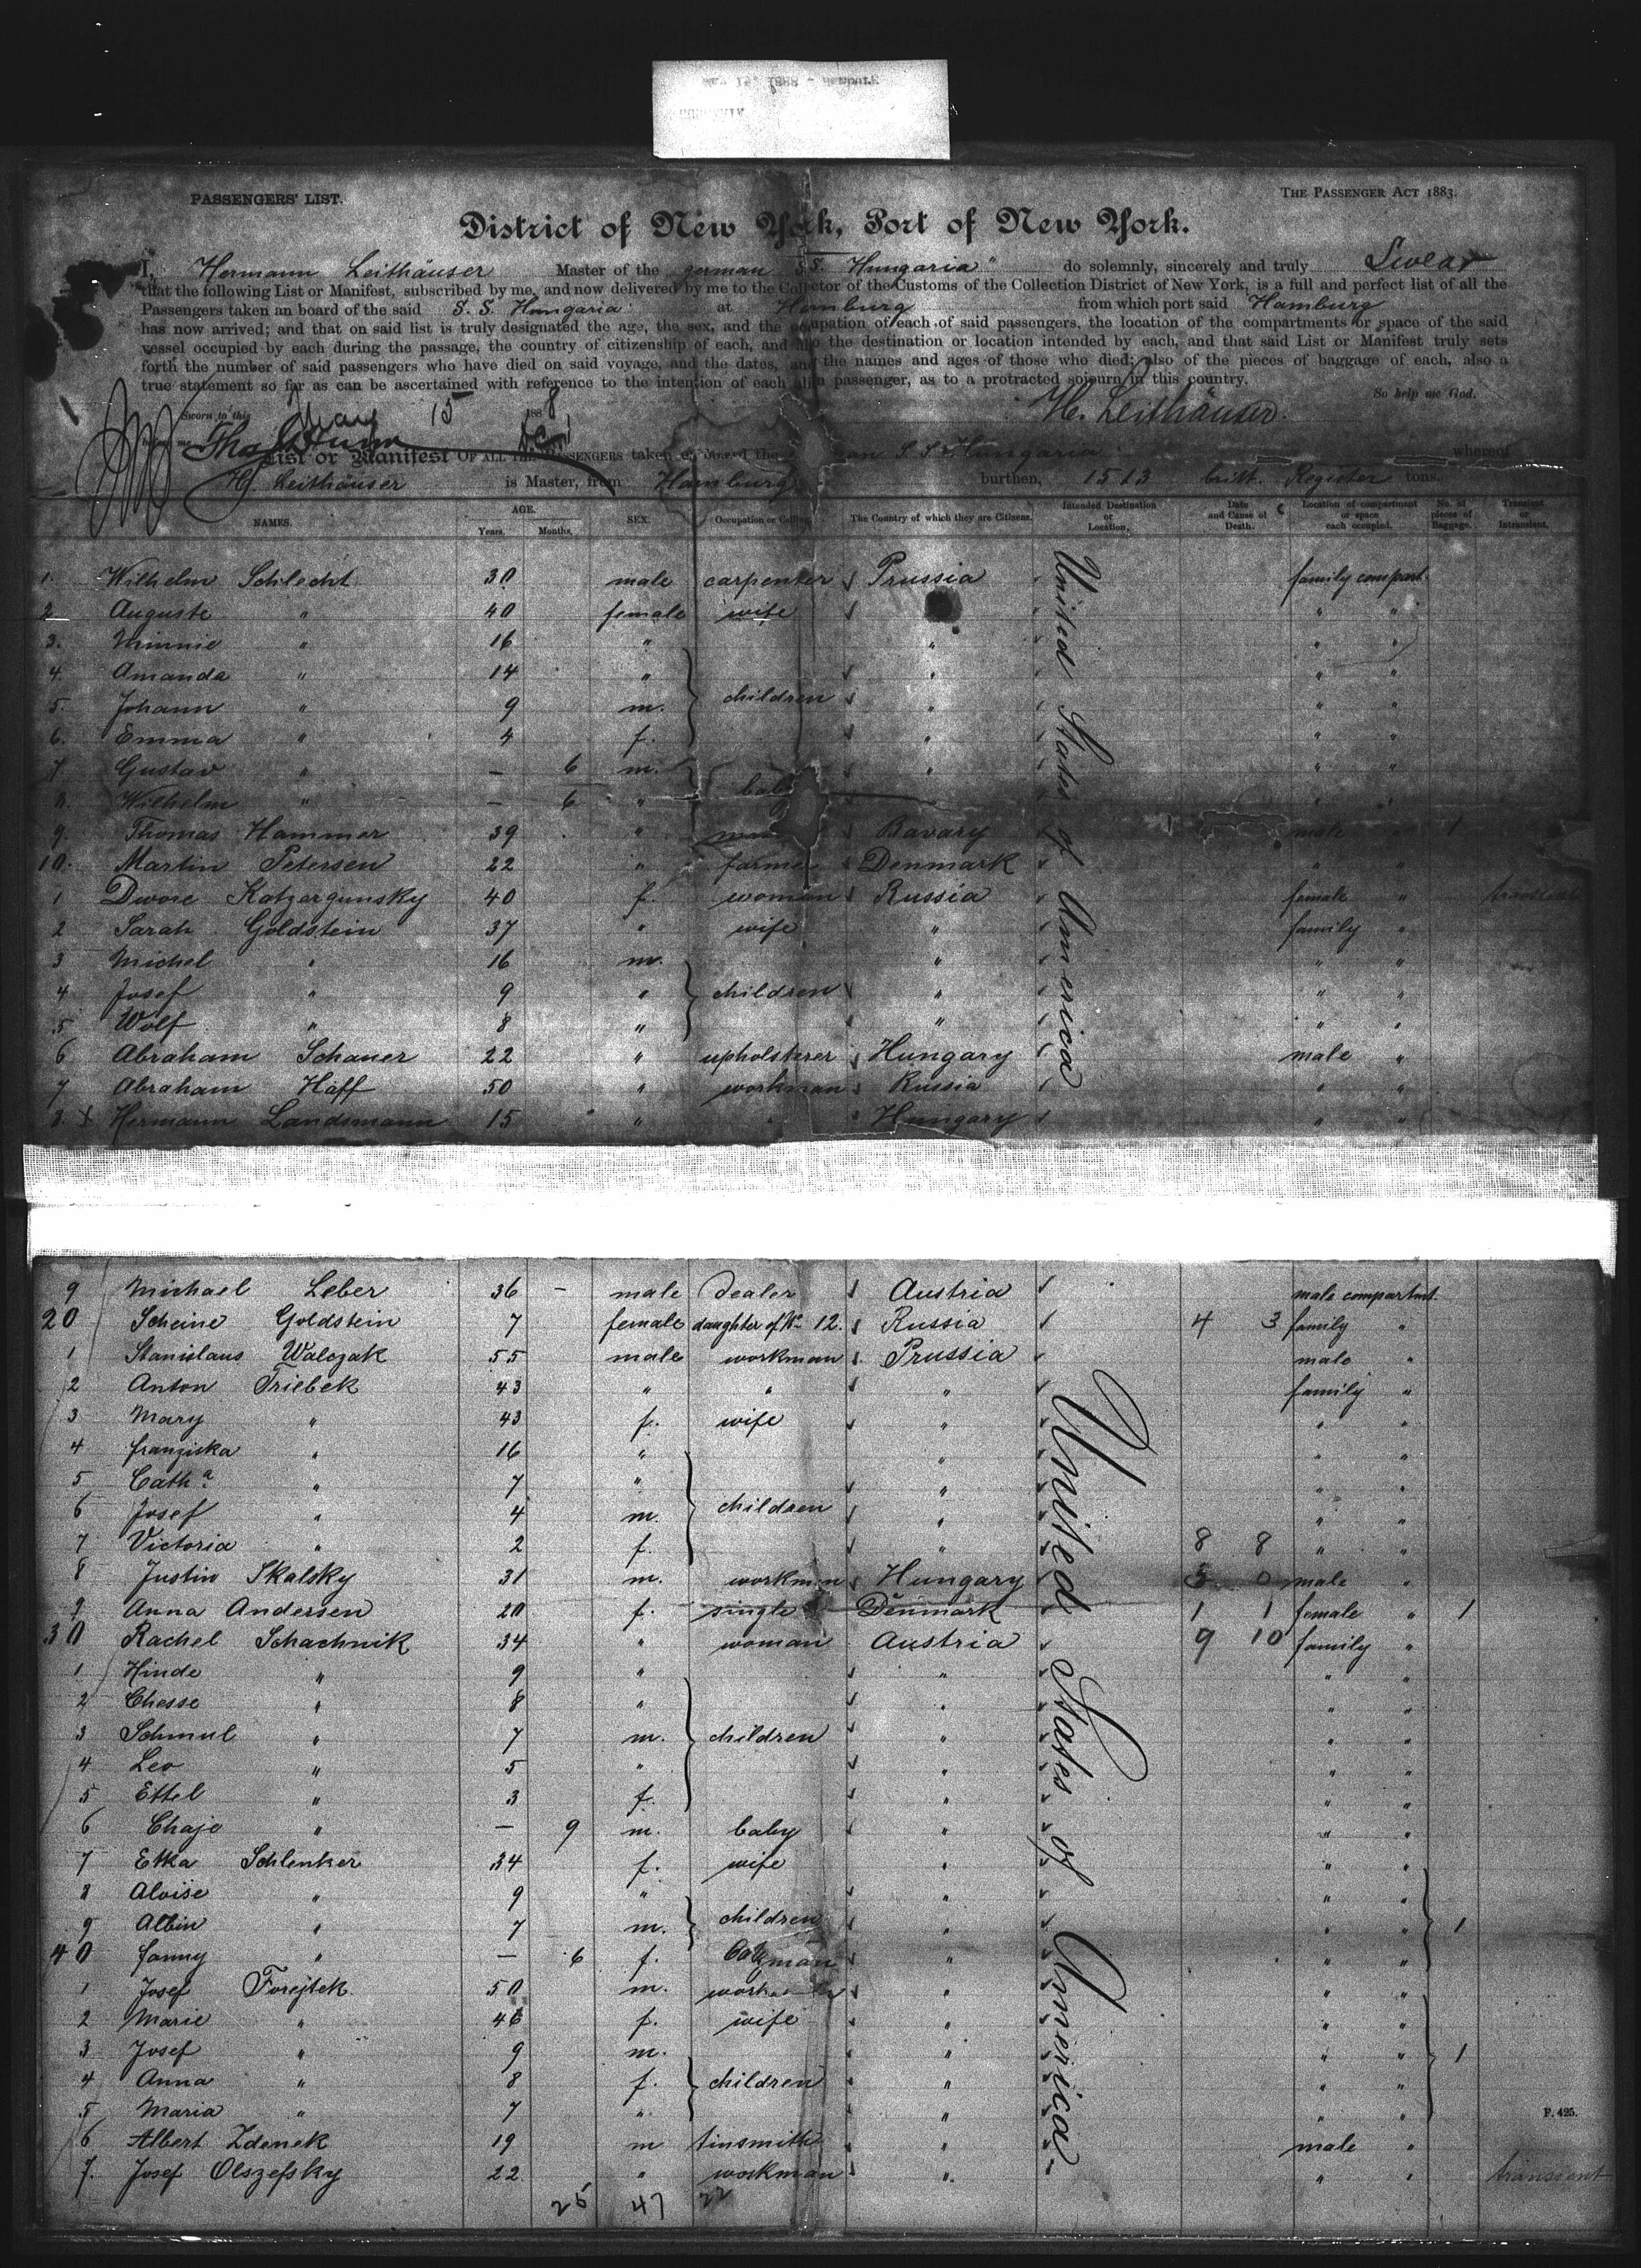 PASSENGERS' LIST.
THE PASSENGER ACT 1883.
District of New York, Port of New York.
I, Hermann Leithäuser Master of the german SS. Hungaria" do solemnly, sincerely and truly Swear
that the following List or Manifest, subscribed by me, and now delivered by me to the Collector of the Customs of the Collection District of New York, is a full and perfect list of all the
Passengers taken an board of the said S. S. Hungaria at Hamburg from which port said Hamburg
has now arrived; and that on said list is truly designated the age, the sex, and the occupation of each of said passengers, the location of the compartments or space of the said
vessel occupied by each during the passage, the country of citizenship of each, and also the destination or location intended by each, and that said List or Manifest truly sets
forth the number of said passengers who have died on said voyage, and the dates, and the names and ages of those who died; also of the pieces of baggage of each, also a
true statement so far as can be ascertained with reference to the intention of each alien passenger, as to a protracted sojourn in this country.
So help me God.
Sworn to this May 15 1888
H. Leithäuser.
before me
List or Manifest OF ALL THE PASSENGERS taken on board the S S Hungaria whereof
H. Leithäuser is Master, from Hamburg burthen, 1513 britt. Register tons.
NAMES. AGE. Years. Months. SEX. Occupation or Calling. The Country of which they are Citizens. Intended Destination or Location, Date and Cause of Death. Location of compartment or space each occupied. No. of pieces of Baggage. Transient or Intransient.
United States of America
1. Wilhelm Schlecht 30 male carpenter Prussia family compart.
2 Auguste " 40 female wife " "
3. Minnie " 16 " " " "
4. Amanda " 14 " " " "
5. Johann " 9 m. children " " "
6. Emma " 4 f. " " "
7. Gustav " — 6 m. " " "
8. Wilhelm " — 6 " baby " "
9. Thomas Hammer 39 " Bavary male " 1
10. Martin Petersen 22 " farmer Denmark " "
1 Dwore Katzergunsky 40 f. woman Russia female " transient
2 Sarah Goldstein 37 " wife " family "
3 Michel " 16 m. " " "
4 Josef " 9 " children " " "
5 Wolf " 8 " " " "
6 Abraham Schauer 22 " upholsterer Hungary male "
7 Abraham Haff 50 " workman Russia " "
8. x Hermann Landsmann 15 " " Hungary " "
9 Michael Leber 36 — male dealer Austria male compartmt.
20 Scheine Goldstein 7 female daughter of No 12. Russia 4 3 family "
1 Stanislaus Walczak 55 male workman Prussia male "
2 Anton Triebek 43 " " " family "
3 Mary " 43 f. wife " " "
4 Franziska " 16 " " " "
5 Catha " 7 " " " "
6 Josef " 4 m. children " " "
7 Victoria " 2 f. " 8 8 " "
8 Justin Skalsky 31 m. workman Hungary 0 male "
9 Anna Andersen 20 f. single Denmark 1 1 female " 1
30 Rachel Schachnik 34 " woman Austria 9 10 family "
1 Hinde " 9 " " " "
2 Chesse " 8 " " " "
3 Schmul " 7 m. children " " "
4 Leo " 5 " " " "
5 Ettel " 3 f. " " "
6 Chaje " — 9 m. baby " " "
7 Etka Schlenker 34 f. wife " " "
8 Aloise " 9 " " " "
9 Albin " 7 m. children " " " 1
40 Fanny " — 6 f. " " "
1 Josef Forejtek 50 m. " " "
2 Marie " 46 f. wife " " "
3 Josef " 9 m. " " " 1
4 Anna " 8 f. children " " "
5 Maria " 7 " " " "
6 Albert Zdenek 19 m tinsmith " male "
7. Josef Olszefsky 22 " workman " " " transient
United States of America
F. 425.
25 47 22